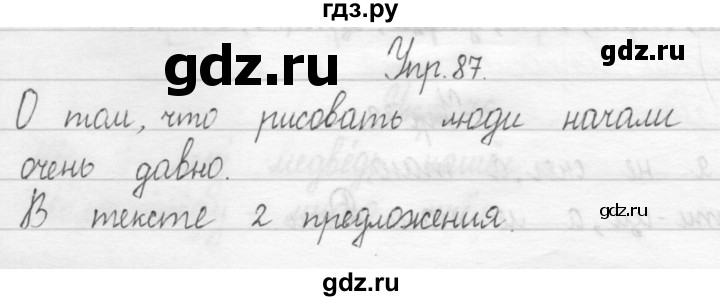 гдз.ру
gdz.ru
gdz.ru
Упр. 87.
О том, что рисовать люди начали
очень давно.
В тексте 2 предложения.
gdz.ru
gdz.ru